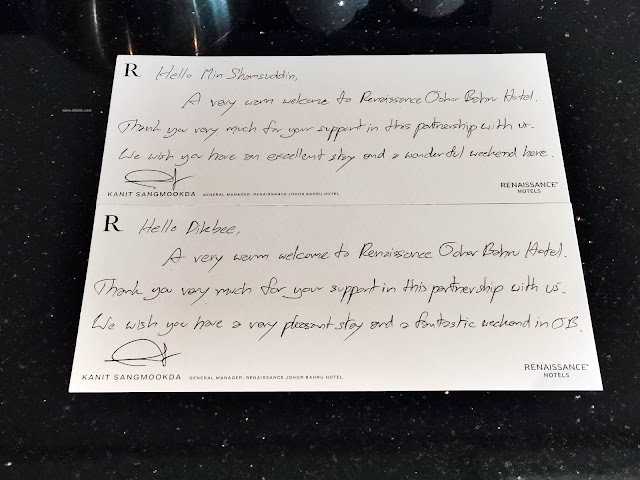 R Hello Min Shamsuddin,
A very warm welcome to Renaissance Johor Bahru Hotel.
Thank you very much for your support in this partnership with us.
We wish you have an excellent stay and a wonderful weekend here.
KANIT SANGMOOKDA GENERAL MANAGER, RENAISSANCE JOHOR BAHRU HOTEL
RENAISSANCE®
HOTELS
R Hello Dilebee,
A very warm welcome to Renaissance Johor Bahru Hotel.
Thank you very much for your support in this partnership with us.
We wish you have a very pleasant stay and a fantastic weekend in JB.
KANIT SANGMOOKDA GENERAL MANAGER, RENAISSANCE JOHOR BAHRU HOTEL
RENAISSANCE®
HOTELS